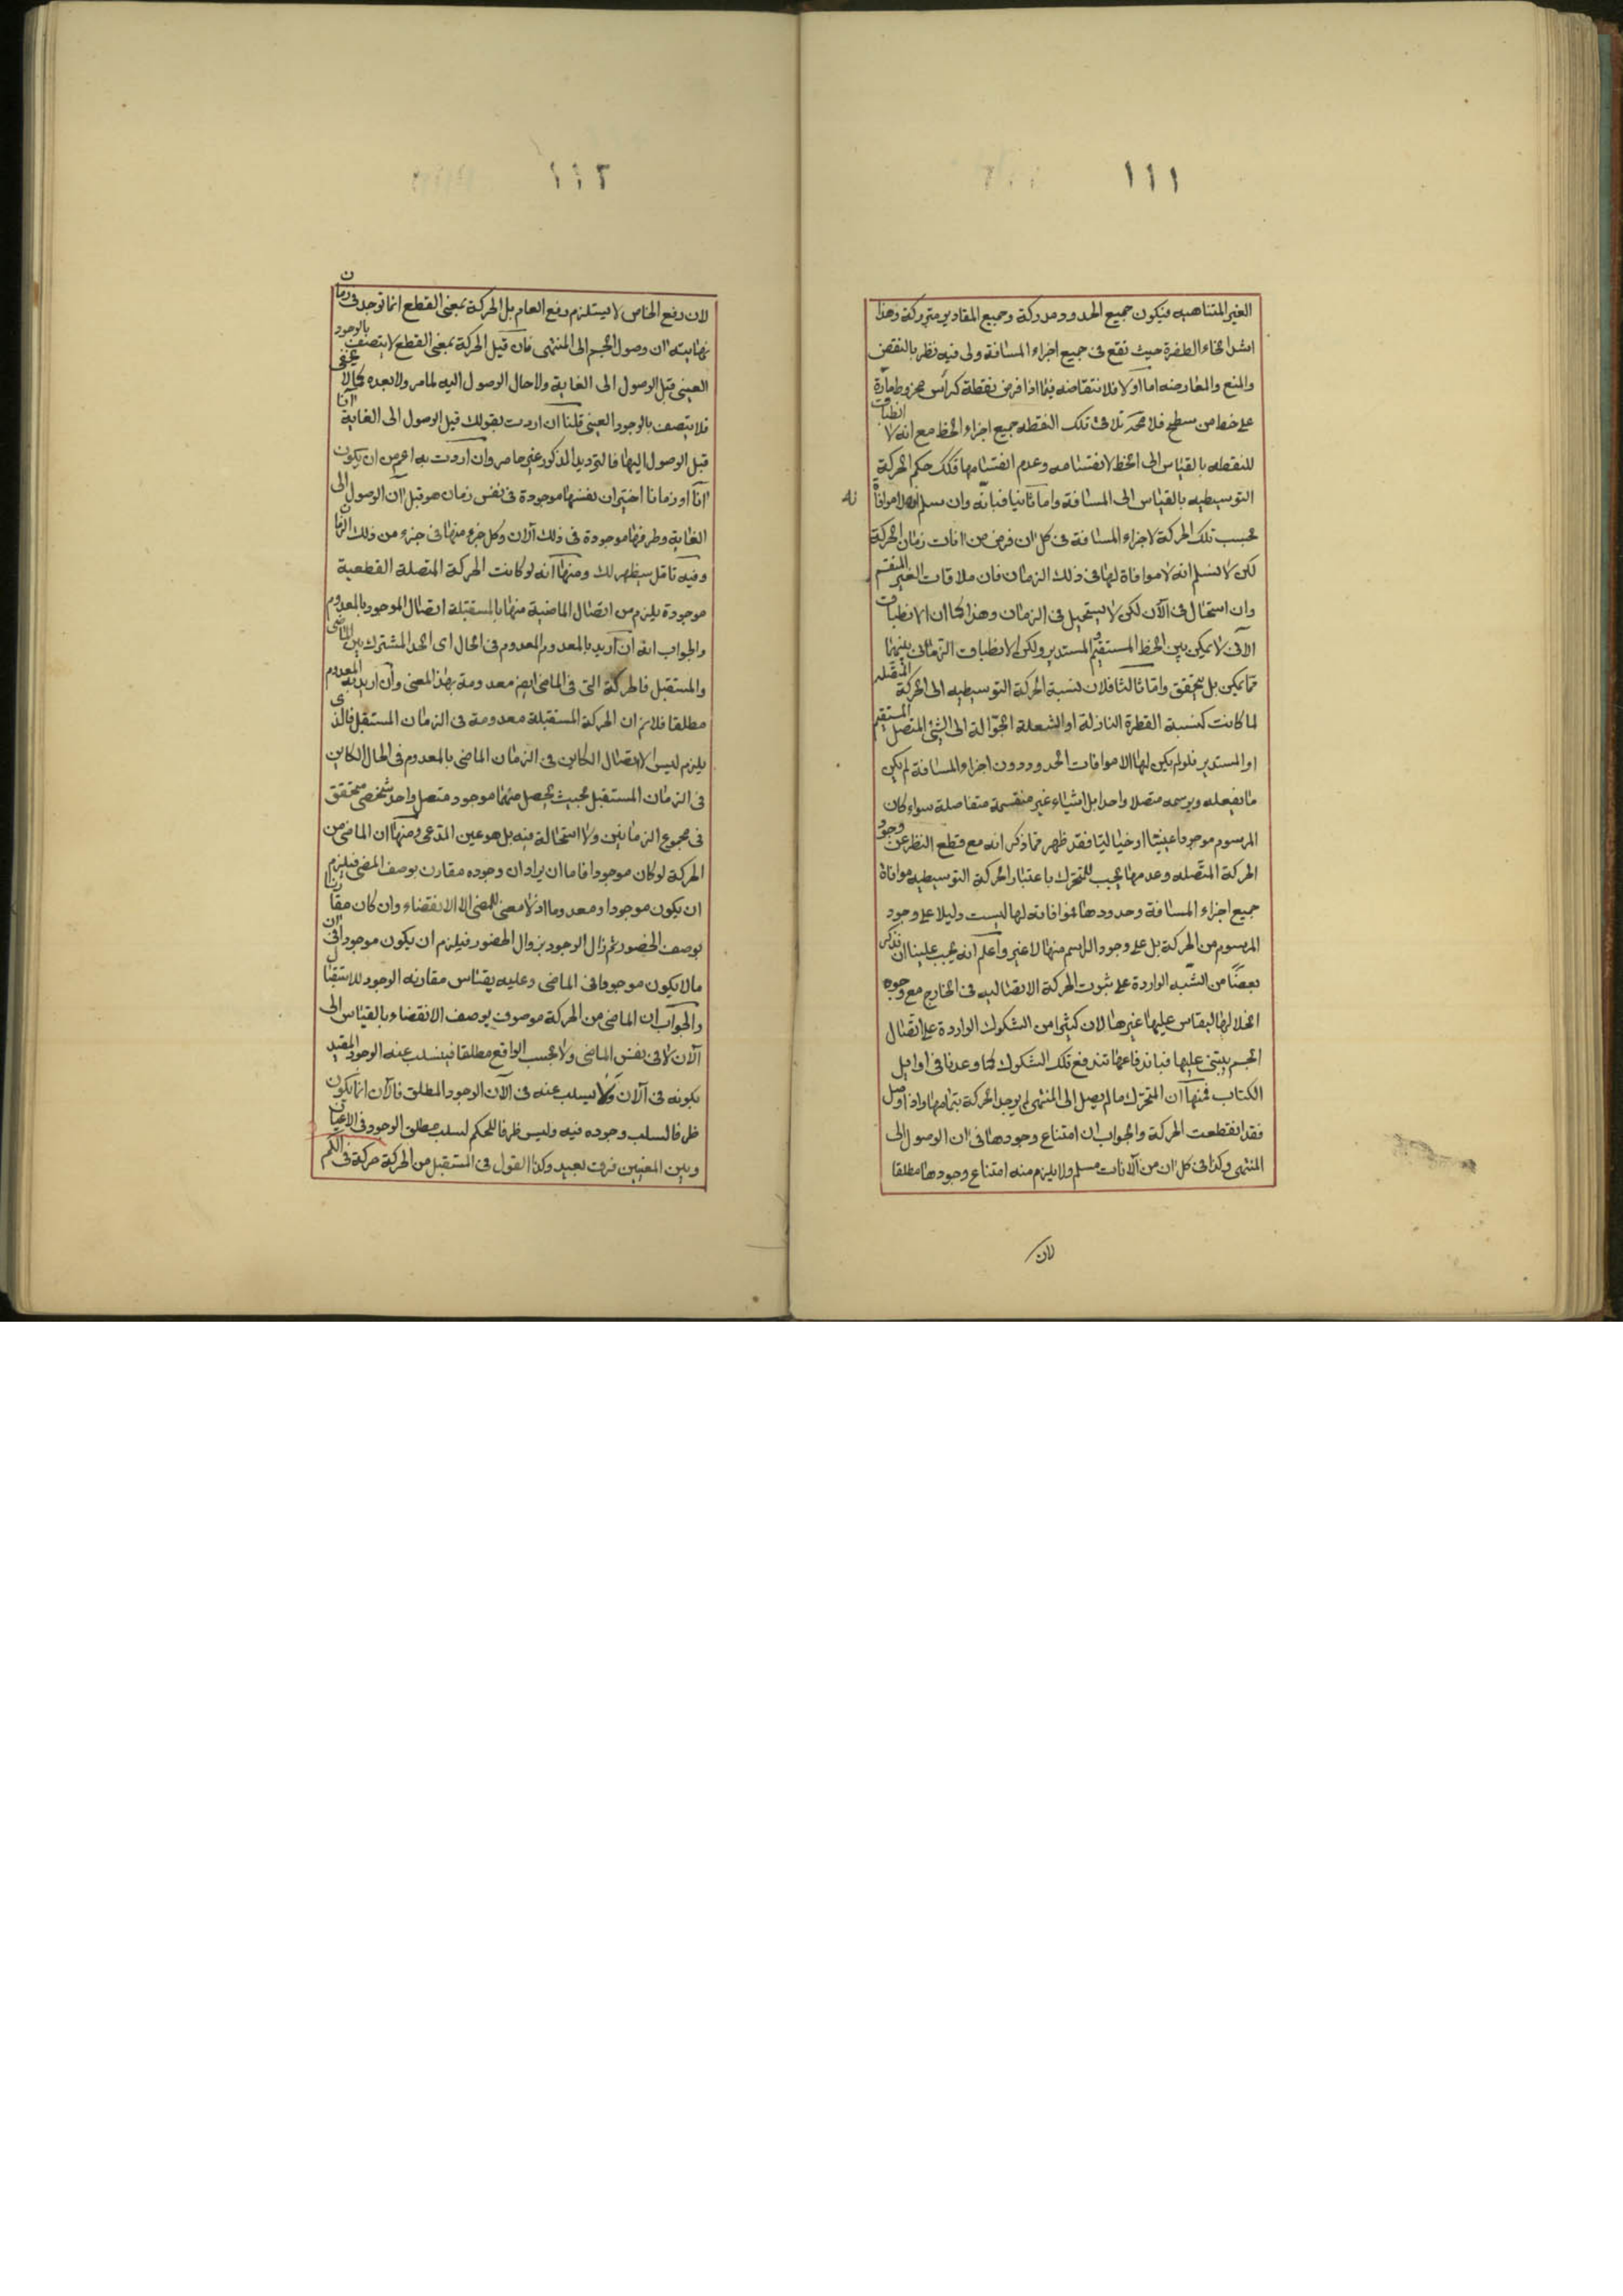 ١١١
الغير المتناهيه فيكون جميع الحدود مدركة وجميع المقادير متروكة وهذا
اشد انحاء الطفرة حيث تقع فى جميع اجزاء المسافة ولى فيه نظر بالنقض
والمنع والمعارضه اما اولا فلانتقاضه فيما اذا فرض نقطة كرأس مخروط مارة
على خط من سطح فلا محة تلاقى تلك النقطه جميع اجزاء الخط مع انه لا انطباق
للنقطه بالقياس الى الخط لانقسامه وعدم انقسامها فكك حكم الحركة
التوسيطيه بالقياس الى المسافة واما ثانيا فبانه وان سلم موافاة
بحسب تلك الحركة لاجزاء المسافة فى كل ان فرض من انات زمان الحركة
لكن لا نسلم انه لا موافاة لها فى ذلك الزمان فان ملاقات الغير المنقسم
وان استحال فى الآن لكن لا يستحيل فى الزمان وهذا كما ان الانطباق
الآنى لا يمكن بين الخط المستقيم والمستدير ولكن الانطباق الزمانى بينهما
مما يمكن بل يتحقق واما ثالثا فلان نسبة الحركة التوسيطيه الى الحركة المتصله
لما كانت كنسبة القطرة النازلة او الشعلة الجوالة الى الشئ المتصل المستقيم
او المستدير فلو لم يكن لها الا موافات الحدود دون اجزاء المسافة لم يكن
ما يفعله ويرسمه متصلا واحدا بل اشياء غير منقسمة متفاصلة سواء كان
المرسوم موجودا عينيا او خياليا فقد ظهر مما ذكر انه مع قطع النظر عن وجود
الحركة المتصله وعدمها يجب للمتحرك باعتبار الحركة التوسيطيه موافاة
جميع اجزاء المسافة وحدودها فموافاته لها ليست دليلا على وجود
المرسوم من الحركة بل على وجود الراسم منها لا غير واعلم انه يجب علينا ان نذكر
بعضا من الشبه الواردة على ثبوت الحركة الاتصاليه فى الخارج مع وجوه
انحلالها ليقاس عليها غيرها لان كثيرا من الشكوك الواردة على اتصال
الجسم يبتنى عليها فباندفاعها تندفع تلك الشكوك كما وعدنا فى اوايل
الكتاب فمنها ان المتحرك ما لم يصل الى المنتهى لم يوجد الحركة بتمامها واذا وصل
فقد انقطعت الحركة والجواب ان امتناع وجودها فى ان الوصول الى
المنتهى وكذا فى كل ان من الآنات مسلم ولا يلزم منه امتناع وجودها مطلقا
لان
١١٢
لان رفع الخاص لا يستلزم رفع العام بل الحركة بمعنى القطع انما توجد فى زمان
نهايته ان وصول الجسم الى المنتهى فان قيل الحركة بمعنى القطع لا يتصف بالوجود
العينى قبل الوصول الى الغاية ولا حال الوصول اليه لما مر ولا بعده كما لا يخفى
فلا يتصف بالوجود العينى قلنا ان اردت بقولك قبل الوصول الى الغاية آنا
قبل الوصول اليها فالترديد المذكور غير حاصر وان اردت به اعم من ان يكون
آنا او زمانا اختير ان نفسها موجودة فى نفس زمان هو قبل آن الوصول الى
الغاية وطرفها موجودة فى ذلك الآن وكل جزء منها فى جزء من ذلك الزمان
وفيه تامل سيظهر لك ومنها انه لو كانت الحركة المتصلة القطعية
موجودة يلزم من اتصال الماضية منها بالمستقبلة اتصال الموجود بالمعدوم
والجواب انه ان اريد بالمعدوم المعدوم فى الحال اى الحد المشترك بين الماضى
والمستقبل فالحركة التى فى الماضى ايضا معدومة بهذا المعنى وان اريد به المعدوم
مطلقا فلا نم ان الحركة المستقبلة معدومة فى الزمان المستقبل فالذى
يلزم ليس الا اتصال الكاين فى الزمان الماضى بالمعدوم فى الحال الكاين
فى الزمان المستقبل بحيث يحصل منهما موجود متصل واحد شخصى متحقق
فى مجموع الزمانين ولا استحالة فيه بل هو عين المدعى ومنها ان الماضى من
الحركة لو كان موجودا فاما ان يراد ان وجوده مقارن بوصف المضى فيلزم
ان يكون موجودا ومعدوما اذ لا معنى للمضى الا الانقضاء وان كان مقارنا
بوصف الحضور ثم زال الوجود بزوال الحضور فيلزم ان يكون موجودا فى ان
ما لا يكون موجودا فى الماضى وعليه يقتاس مقارنه الوجود للاستقبال
والجواب ان الماضى من الحركة موصوف بوصف الانقضاء بالقياس الى
الآن لا فى نفس الماضى ولا بحسب الواقع مطلقا فينسلب عنه الوجود المقيد
بكونه فى الآن ولا يسلب عنه فى الآن الوجود المطلق فالآن انما يكون
ظرفا لسلب وجوده فيه وليس ظرفا للحكم لسلب مطلق الوجود فى الاعيان
وبين المعنيين فرق بعيد وكذا القول فى المستقبل من الحركة حركة فى الكم